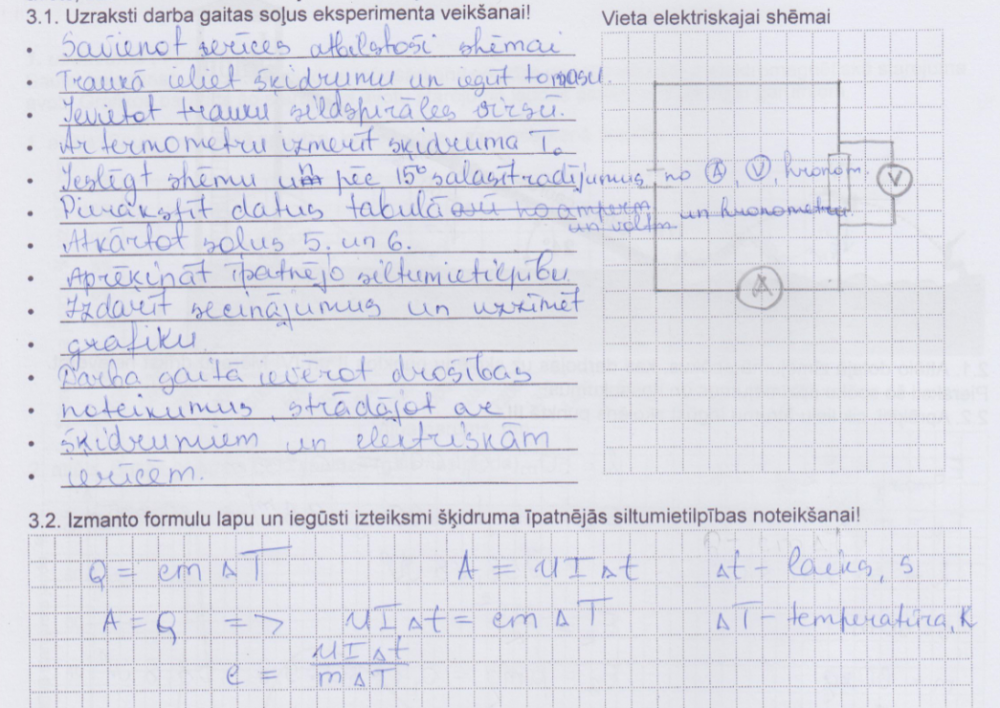 3.1. Uzraksti darba gaitas soļus eksperimenta veikšanai!
Vieta elektriskajai shēmai
• Savienot ierīces atbilstoši shēmai
• Traukā ieliet šķidrumu un iegūt to masu.
• Ievietot trauku sildspirāles virsū.
• Ar termometru izmērīt šķidruma T₀
• Ieslēgt shēmu un pēc 15° nolasīt rādījumus no A, V, hronom.
• Pierakstīt datus tabulā no amperm un hronometru
un voltm
• Atkārtot soļus 5. un 6.
• Aprēķināt īpatnējo siltumietilpību
• Izdarīt secinājumus un uzzīmēt
• grafiku.
• Darba gaitā ievērot drošības
• noteikumus, strādājot ar
• šķidrumiem un elektriskām
• ierīcēm.
V
A
3.2. Izmanto formulu lapu un iegūsti izteiksmi šķidruma īpatnējās siltumietilpības noteikšanai!
Q = cm ΔT A = UIΔt Δt – laiks, s
A = Q => UIΔt = cm ΔT ΔT – temperatūra, K
c = UIΔt / mΔT